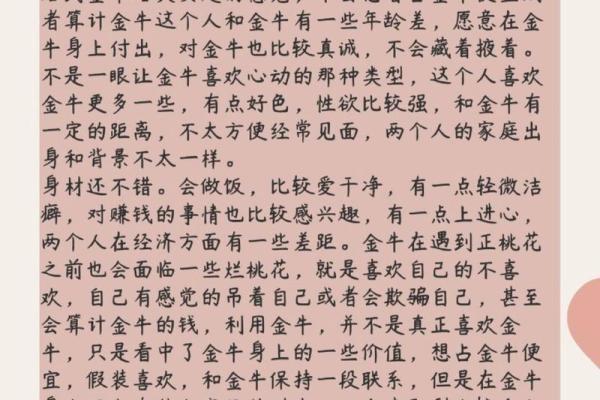 者算计金牛这个人和金牛有一些年龄差，愿意在金
牛身上付出，对金牛也比较真诚，不会藏着掖着。
不是一眼让金牛喜欢心动的那种类型，这个人喜欢
金牛更多一些，有点好色，性欲比较强，和金牛有
一定的距离，不太方便经常见面，两个人的家庭出
身和背景不太一样。
身材还不错。会做饭，比较爱干净，有一点轻微洁
癖，对赚钱的事情也比较感兴趣，有一点上进心，
两个人在经济方面有一些差距。金牛在遇到正桃花
之前也会面临一些烂桃花，就是喜欢自己的不喜
欢，自己有感觉的吊着自己或者会欺骗自己，甚至
会算计金牛的钱，利用金牛，并不是真正喜欢金
牛，只是看中了金牛身上的一些价值，想占金牛便
宜，假装喜欢，和金牛保持一段联系，但是在金牛